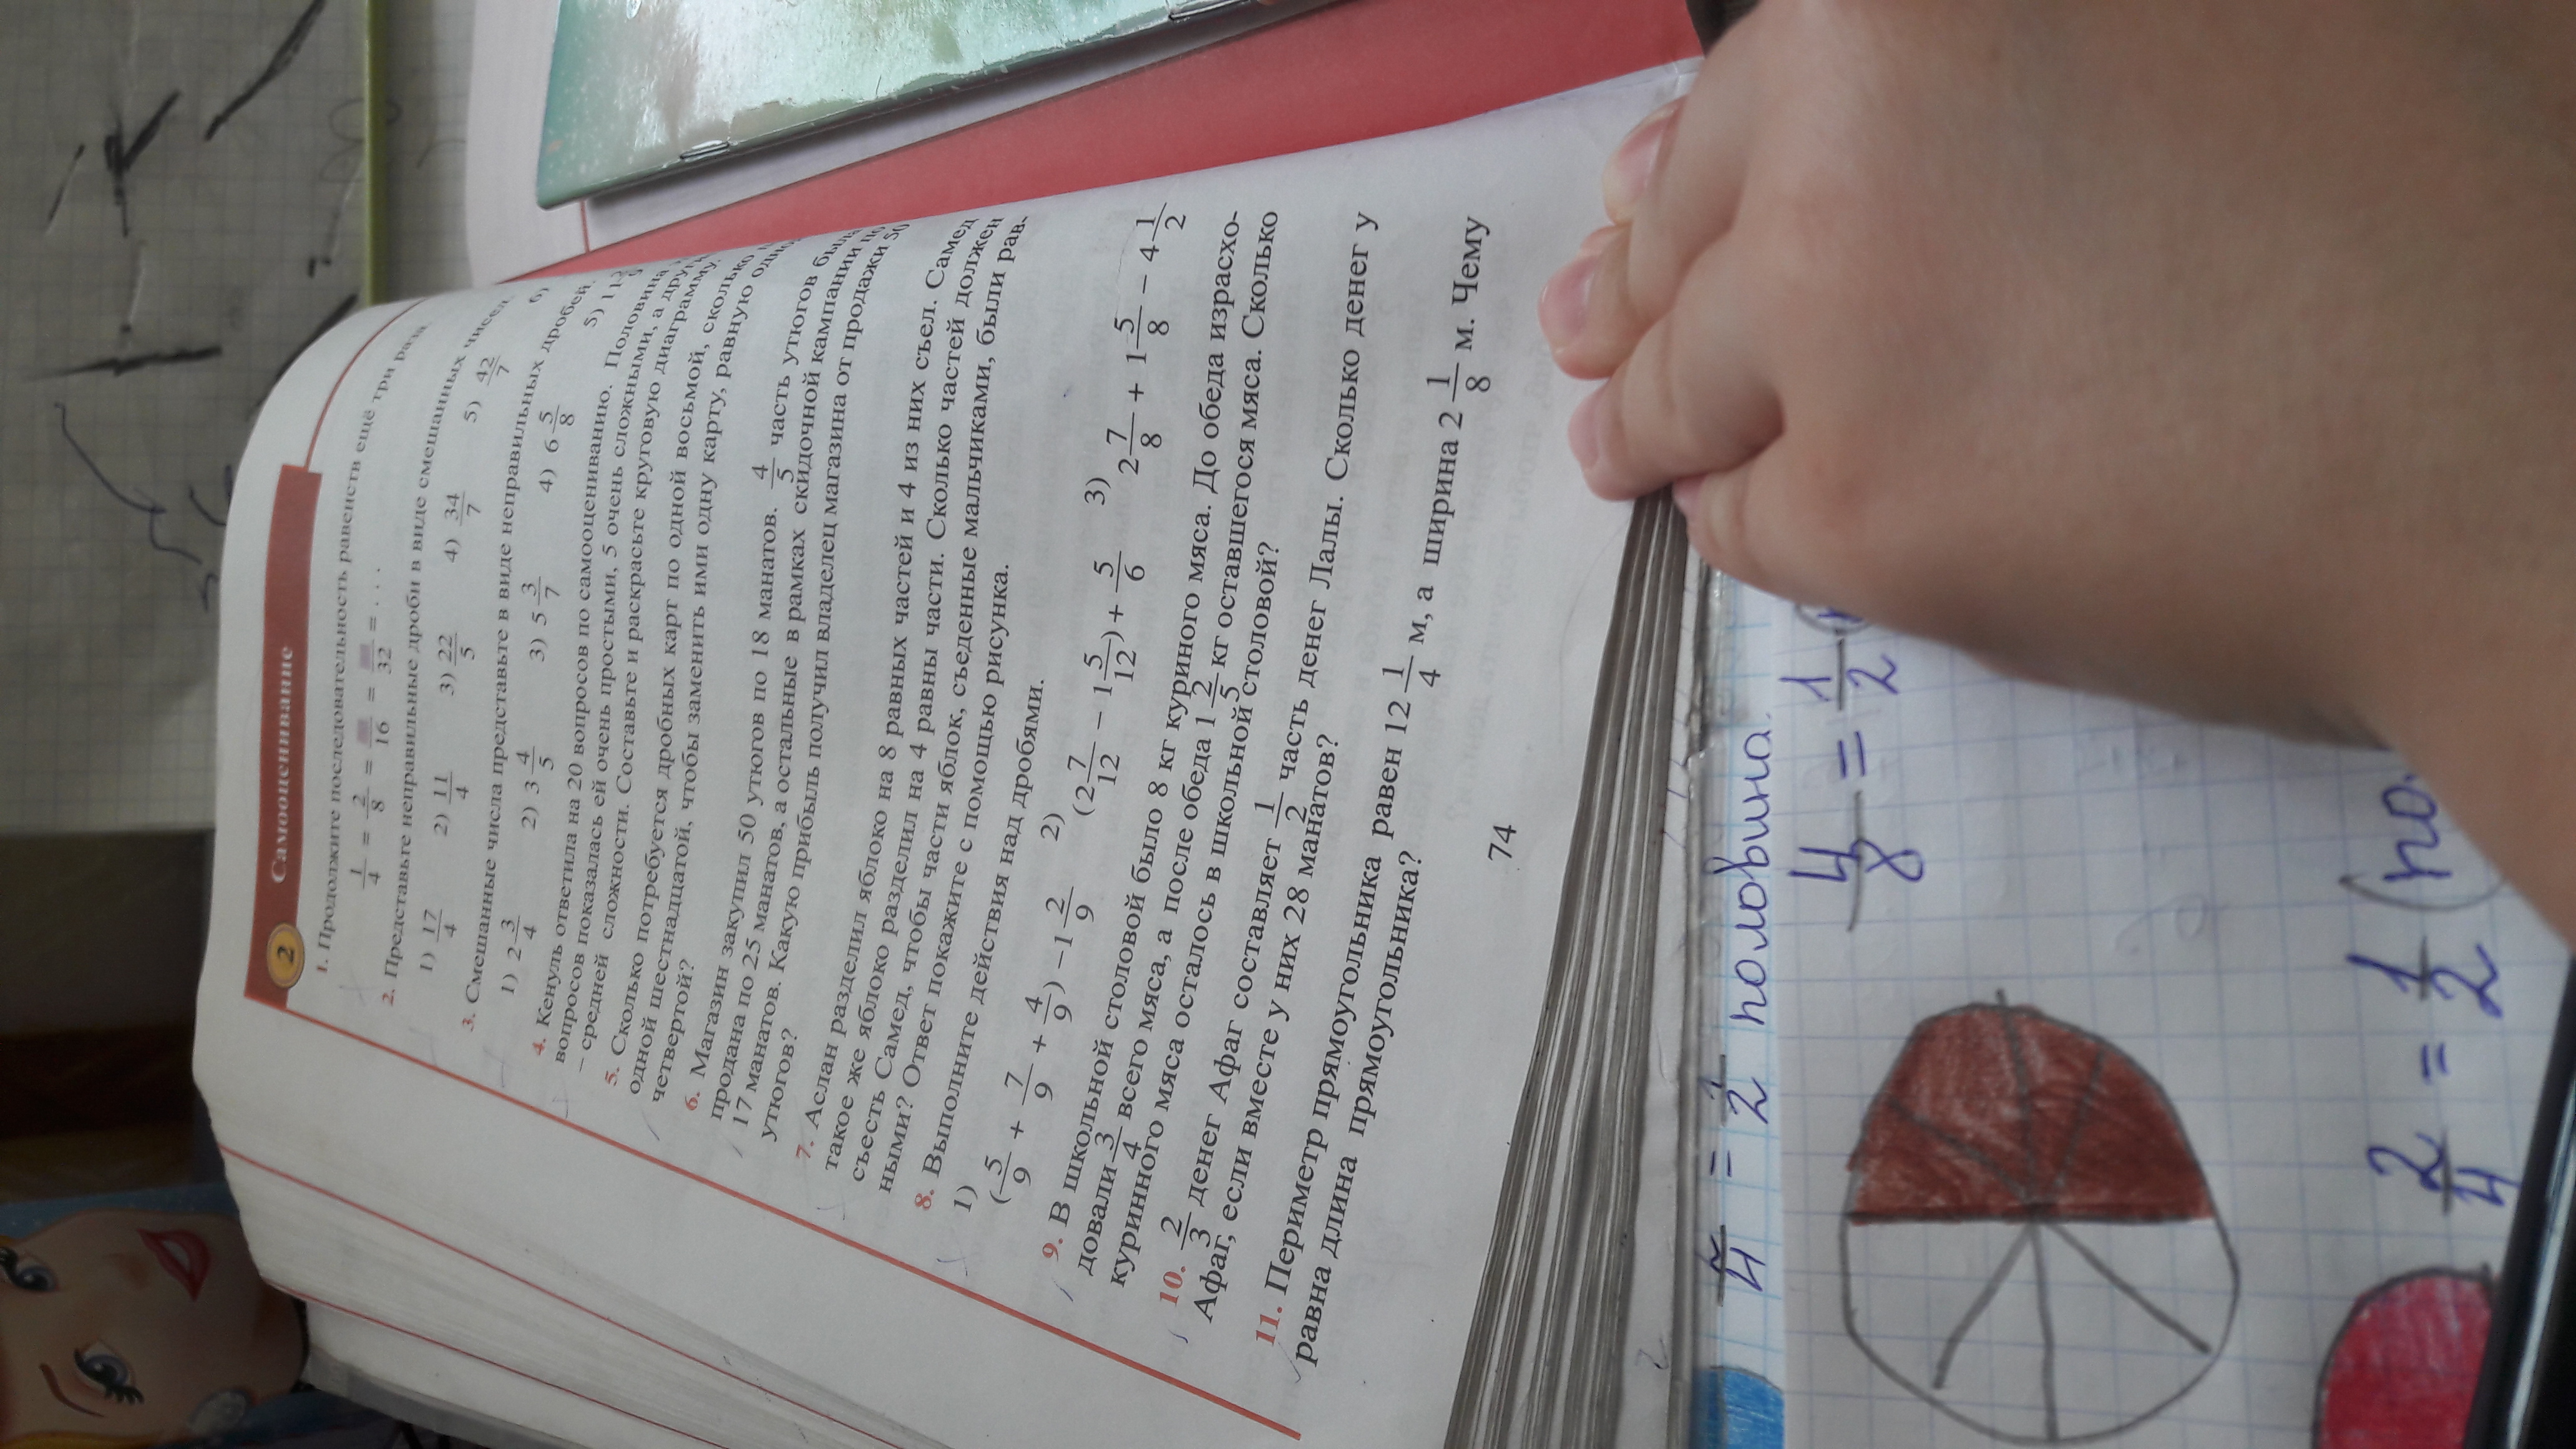 2 Самооценивание
1. Продолжите последовательность равенств ещё три раза
1/4 = 2/8 = /16 = /32 = . . .
2. Представьте неправильные дроби в виде смешанных чисел.
1) 17/4 2) 11/4 3) 22/5 4) 34/7 5) 42/7 6)
3. Смешанные числа представьте в виде неправильных дробей.
1) 2 3/4 2) 3 4/5 3) 5 3/7 4) 6 5/8 5)
4. Кенуль ответила на 20 вопросов по самооцениванию. Половина
вопросов показалась ей очень простыми, 5 очень сложными, а
– средней сложности. Составьте и раскрасьте круговую диаграмму.
5. Сколько потребуется дробных карт по одной восьмой, сколько
одной шестнадцатой, чтобы заменить ими одну карту, равную
четвертой?
6. Магазин закупил 50 утюгов по 18 манатов. 4/5 часть утюгов была
продана по 25 манатов, а остальные в рамках скидочной кампании по
17 манатов. Какую прибыль получил владелец магазина от продажи 50
утюгов?
7. Аслан разделил яблоко на 8 равных частей и 4 из них съел. Самед
такое же яблоко разделил на 4 равны части. Сколько частей должен
съесть Самед, чтобы части яблок, съеденные мальчиками, были рав-
ными? Ответ покажите с помощью рисунка.
8. Выполните действия над дробями.
1) 2) 3)
(5/9 + 7/9 + 4/9) – 1 2/9 (2 7/12 – 1 5/12) + 5/6 2 7/8 + 1 5/8 – 4 1/2
9. В школьной столовой было 8 кг куриного мяса. До обеда израсхо-
довали 3/4 всего мяса, а после обеда 1 2/5 кг оставшегося мяса. Сколько
куринного мяса осталось в школьной столовой?
10. 2/3 денег Афаг составляет 1/2 часть денег Лалы. Сколько денег у
Афаг, если вместе у них 28 манатов?
11. Периметр прямоугольника равен 12 1/4 м, а ширина 2 1/8 м. Чему
равна длина прямоугольника?
74
= 1/2 половина.
4/8 = 1/2
2/4 = 1/2 (по